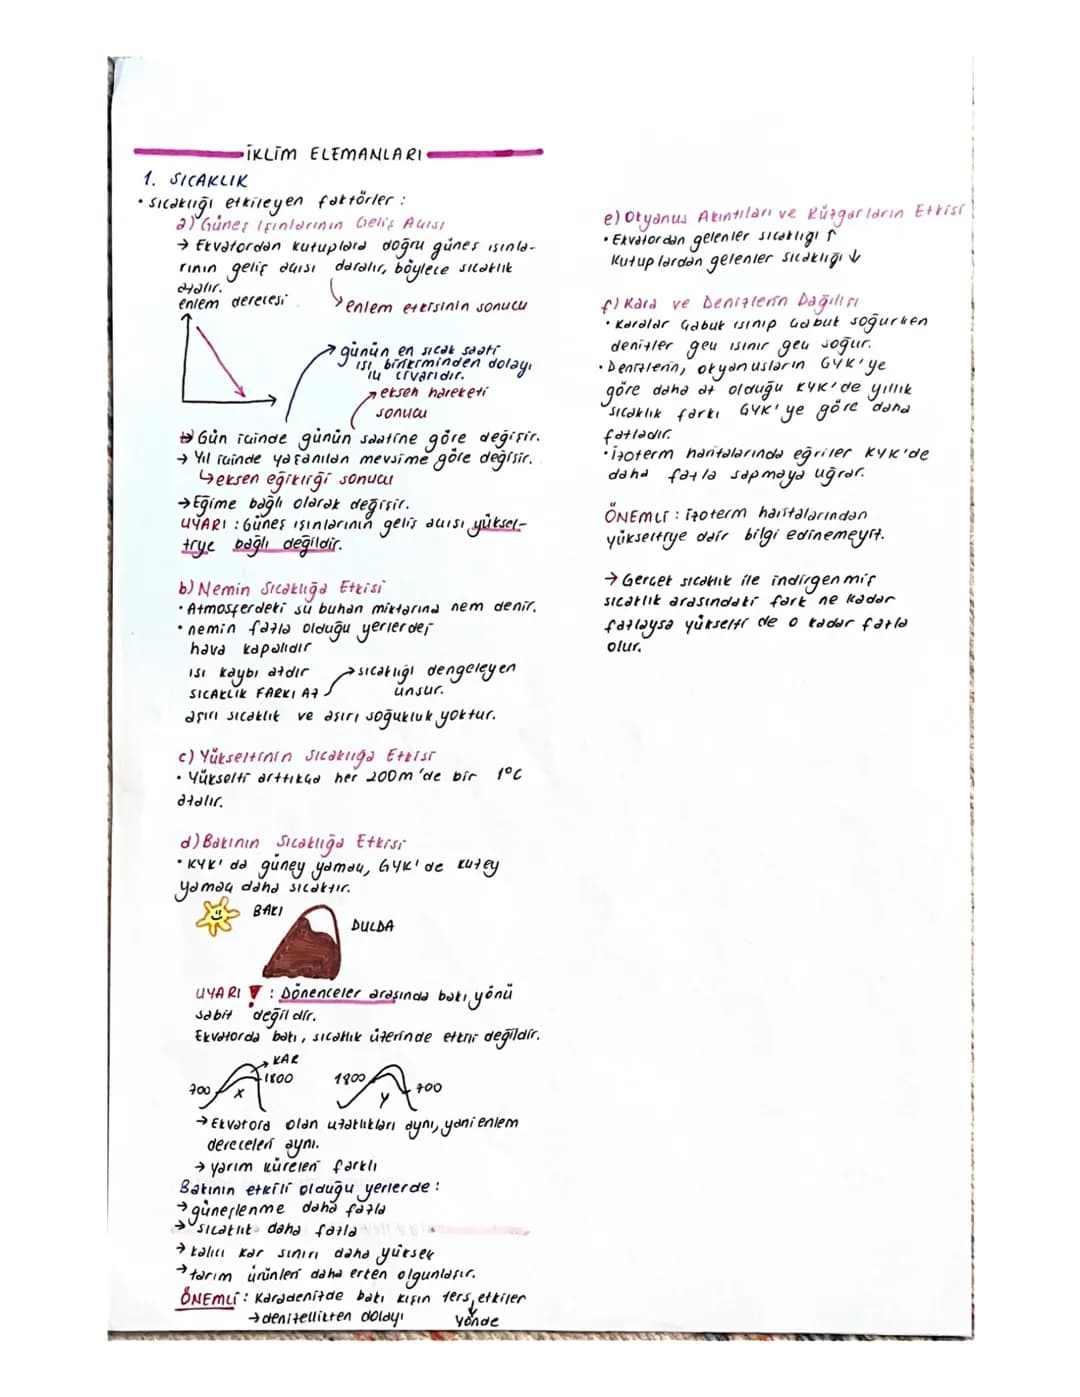 İKLİM ELEMANLARI
1. SICAKLIK
• Sıcaklığı etkileyen faktörler :
a) Güneş Işınlarının Geliş Açısı
→ Ekvatordan kutuplara doğru güneş ışınla-
rının geliş açısı daralır, böylece sıcaklık
azalır.
enlem derecesi
enlem etkisinin sonucu
günün en sıcak saati
ısı birikiminden dolayı
civarıdır.
eksen hareketi
sonucu
→ Gün içinde günün saatine göre değişir.
→ Yıl içinde yaşanılan mevsime göre değişir.
eksen eğikliği sonucu
→ Eğime bağlı olarak değişir.
UYARI : Güneş ışınlarının geliş açısı yüksel-
tiye bağlı değildir.
b) Nemin Sıcaklığa Etkisi
• Atmosferdeki su buharı miktarına nem denir.
• nemin fazla olduğu yerlerde;
hava kapalıdır
ısı kaybı azdır
sıcaklığı dengeleyen
unsur.
SICAKLIK FARKI AZ
aşırı sıcaklık ve aşırı soğukluk yoktur.
c) Yükseltinin Sıcaklığa Etkisi
• Yükselti arttıkça her 200m'de bir 1°C
azalır.
d) Bakının Sıcaklığa Etkisi
• KYK' da güney yamaç, GYK' de kuzey
yamaç daha sıcaktır.
BAKI
DULDA
UYARI ! : Dönenceler arasında bakı yönü
sabit değildir.
Ekvatorda bakı, sıcaklık üzerinde etkili değildir.
KAR
700 X 1800
1800 Y 700
→ Ekvatora olan uzaklıkları aynı, yani enlem
dereceleri aynı.
→ yarım küreleri farklı
Bakının etkili olduğu yerlerde :
→ güneşlenme daha fazla
→ sıcaklık daha fazla
→ kalıcı kar sınırı daha yüksek
→ tarım ürünleri daha erken olgunlaşır.
ÖNEMLİ : Karadenizde bakı kışın ters etkiler
→ denizellikten dolayı
yönde
e) Okyanus Akıntıları ve Rüzgarların Etkisi
• Ekvatordan gelenler sıcaklığı ↑
Kutuplardan gelenler sıcaklığı ↓
f) Kara ve Denizlerin Dağılışı
• Karalar çabuk ısınıp çabuk soğurken
denizler geç ısınır geç soğur.
• Denizlerin, okyanusların GYK'ye
göre daha az olduğu KYK'de yıllık
sıcaklık farkı GYK'ye göre daha
fazladır.
• İzoterm haritalarında eğriler KYK'de
daha fazla sapmaya uğrar.
ÖNEMLİ : İzoterm haritalarından
yükseltiye dair bilgi edinemeyiz.
→ Gerçek sıcaklık ile indirgenmiş
sıcaklık arasındaki fark ne kadar
fazlaysa yükselti de o kadar fazla
olur.